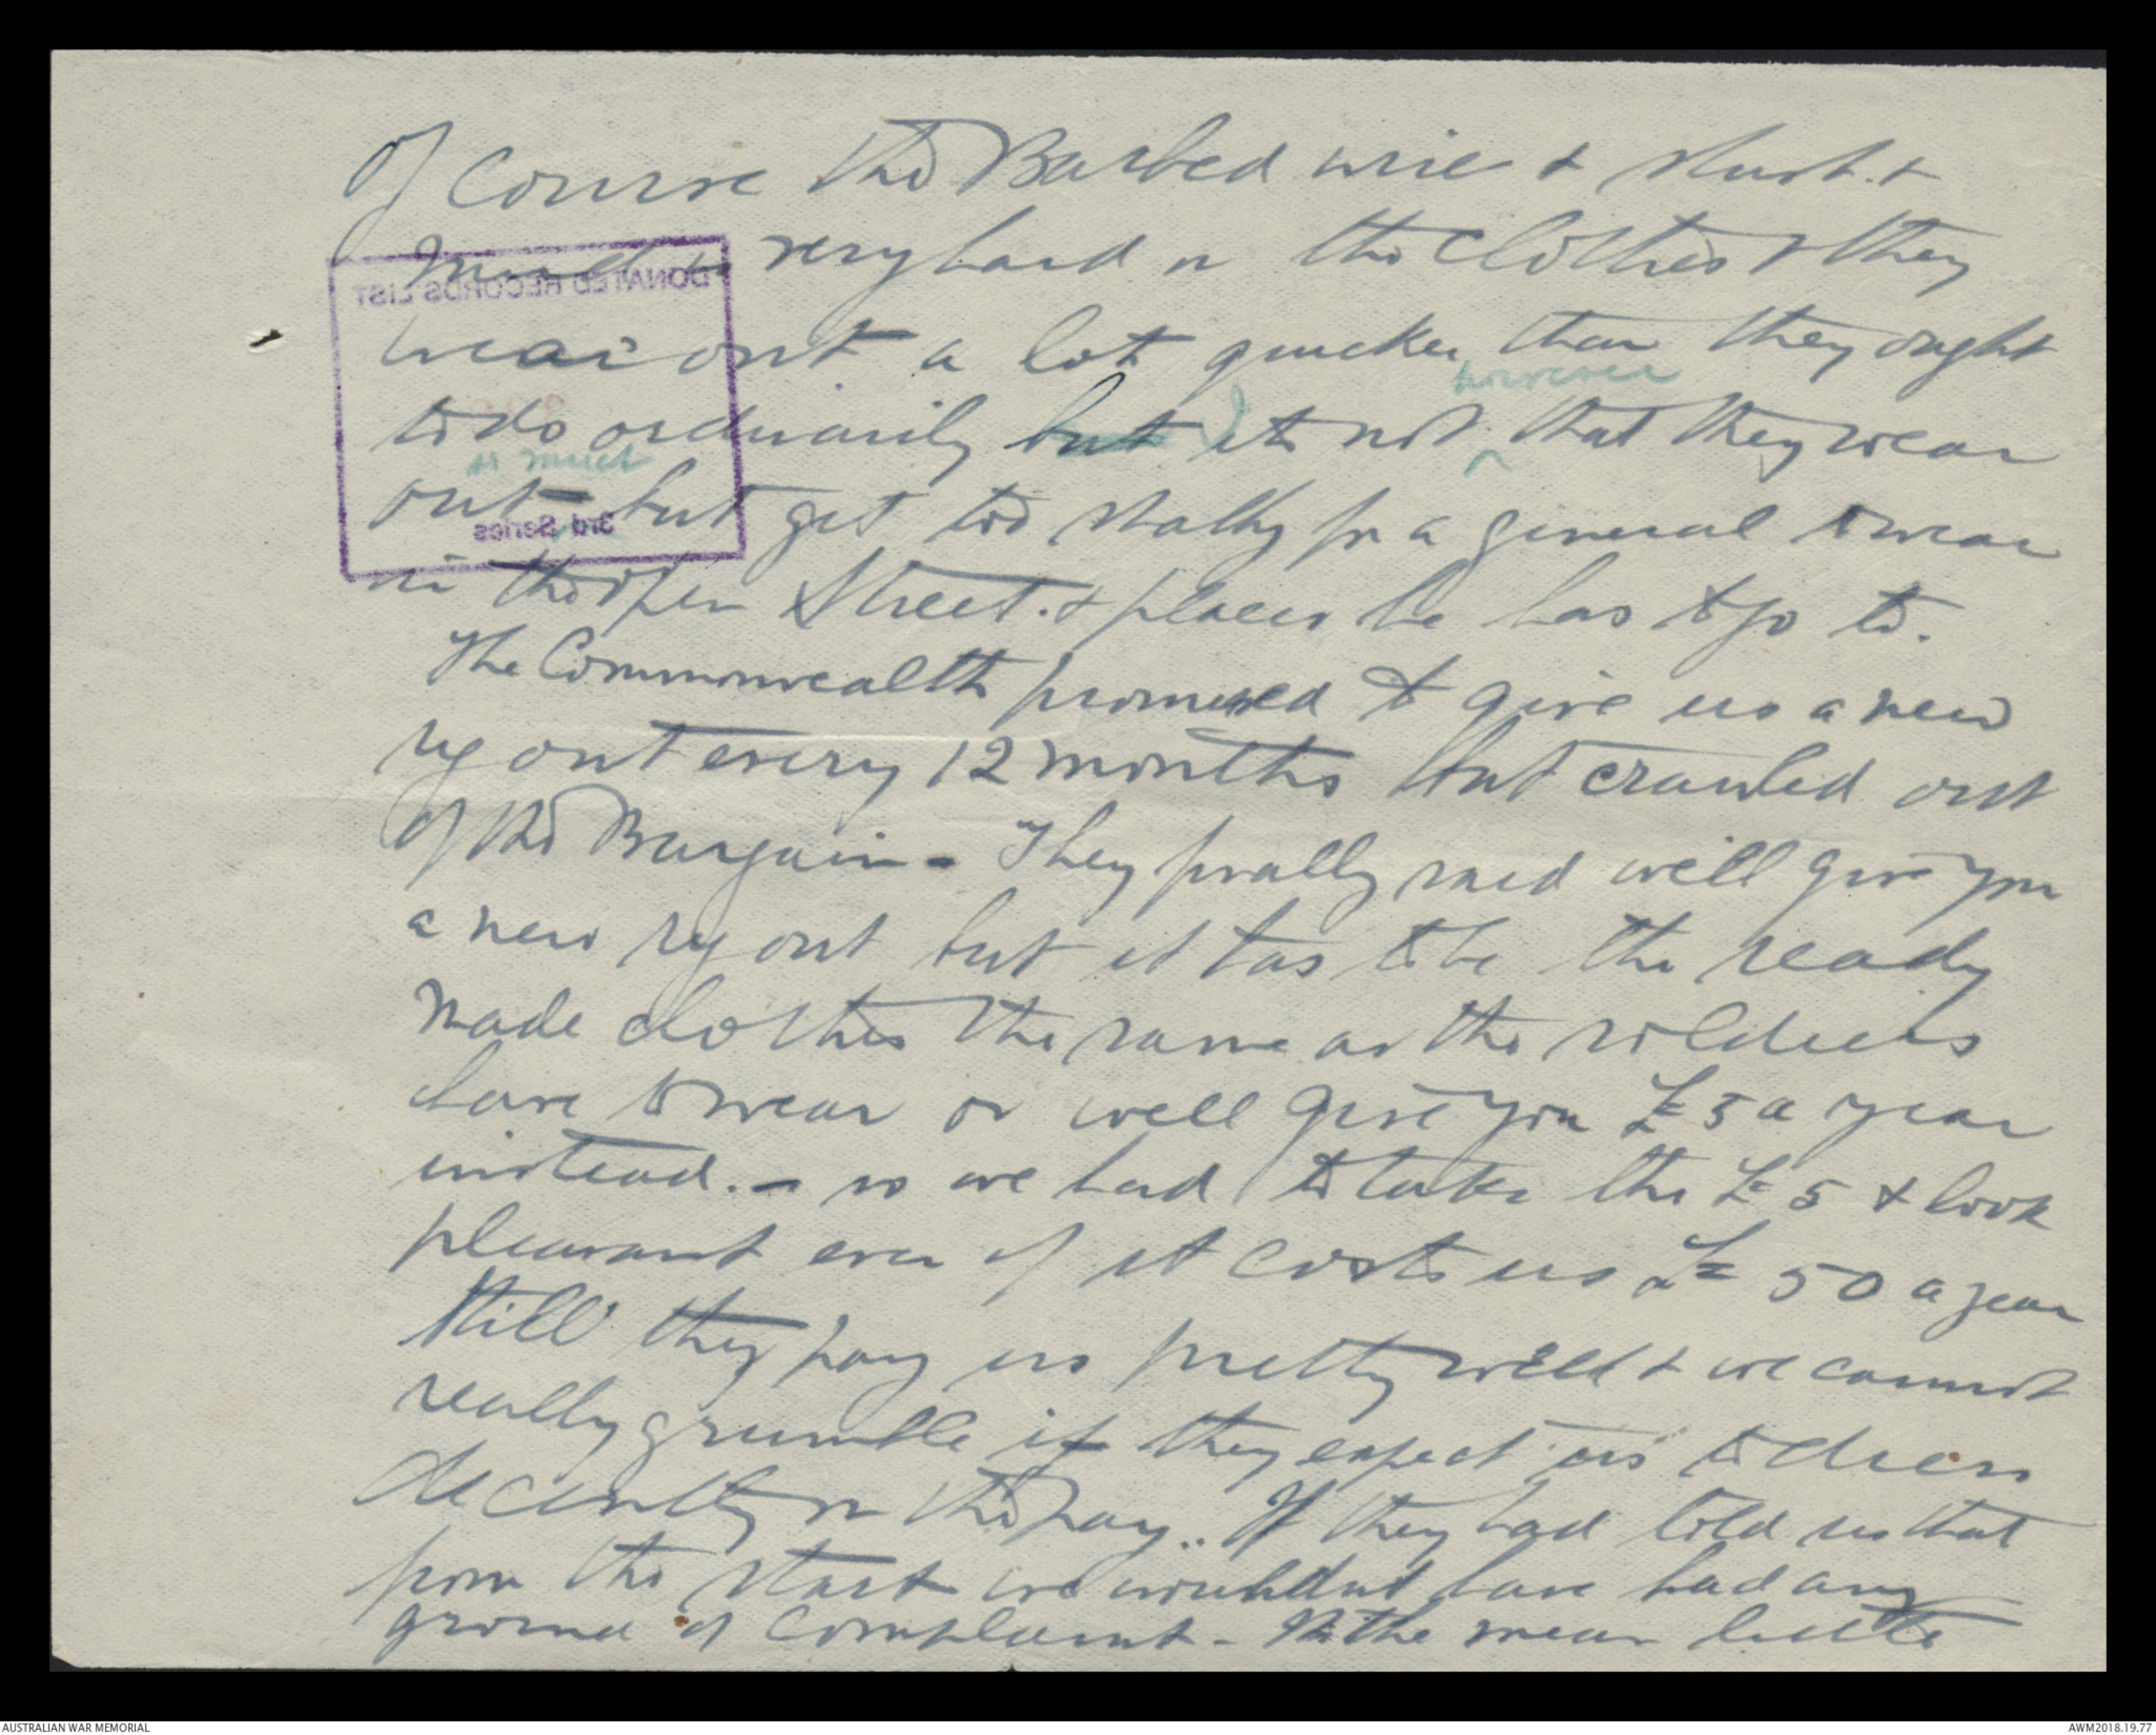 Of Course the Barbed wire & dust &
mud is very hard on the clothes & they
wear out a lot quicker than they ought
however
to do ordinarily but its not ^ that they wear
so much
out - but get too shabby for a general to wear
in the open Street. & places he has to go to.
The Commonwealth promised to give us a new
rig out every 12 months but crawled out
of the Bargain - They finally said we'll give you
a new rig out but it has to be the ready
made clothes the same as the soldiers
have to wear or well give you £5 a year
instead. - so we had to take the £5 & look
pleasant even if it costs us £50 a year
Still they pay us pretty well & we cannot
really grumble if they expect us to dress
decently on the pay.. If they had told us that
from the start we wouldnt have had any
ground of Complaint - the mean little
DONATED RECORDS LIST
3rd Series
AUSTRALIAN WAR MEMORIAL
AWM2018.19.77